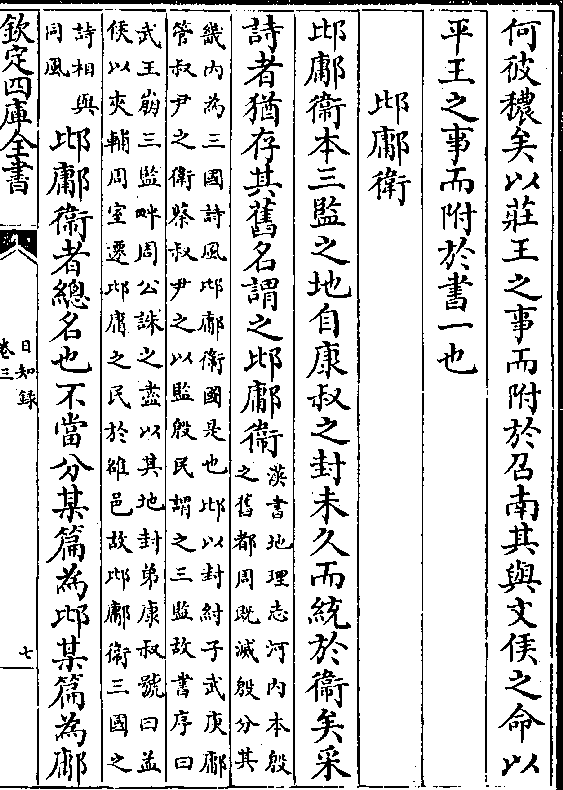 何彼穠矣以莊王之事而附於召南其與文侯之命以
平王之事而附於書一也
邶鄘衛
邶鄘衛本三監之地自康叔之封未久而統於衛矣采
詩者猶存其舊名謂之邶鄘衛
漢書地理志河内本殷
之舊都周既滅殷分其
畿内為三國詩風邶鄘衛國是也邶以封紂子武庚鄘
管叔尹之衛蔡叔尹之以監殷民謂之三監故書序曰
武王崩三監畔周公誅之盡以其地封弟康叔號曰孟
侯以夾輔周室遷邶庸之民於雒邑故邶鄘衛三國之
詩相與
同風
邶鄘衛者總名也不當分某篇為邶某篇為鄘
欽定四庫全書
日知錄
卷三
七